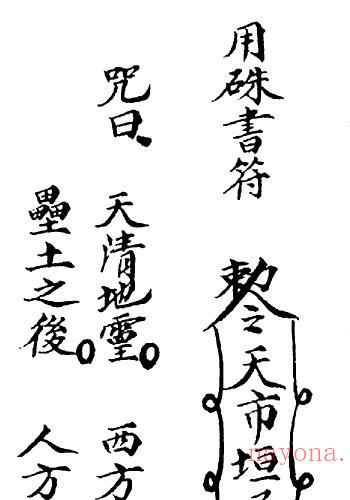 用硃書符
勅令之天市垣
咒曰 天清地靈。西方
壘土之後。人方
nayona.